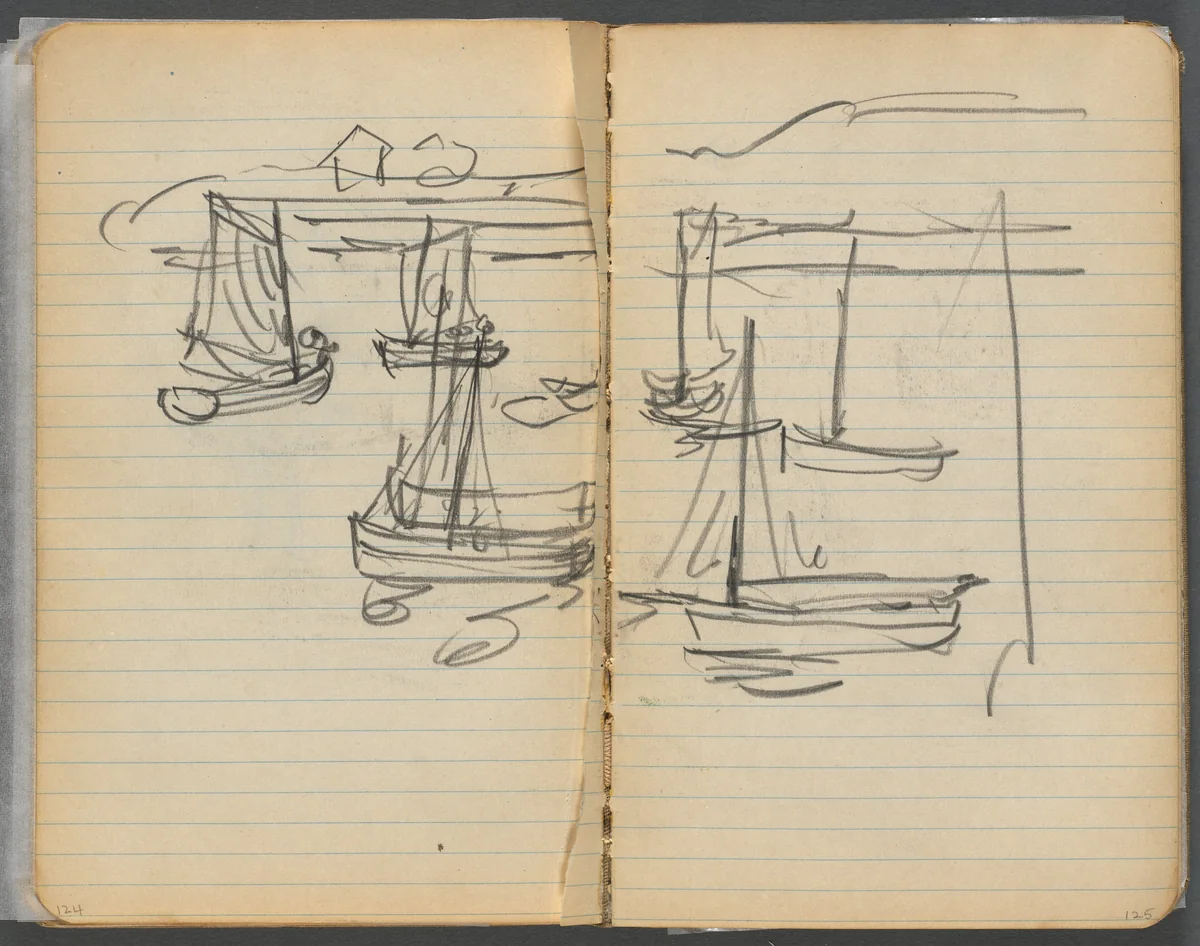 124
125